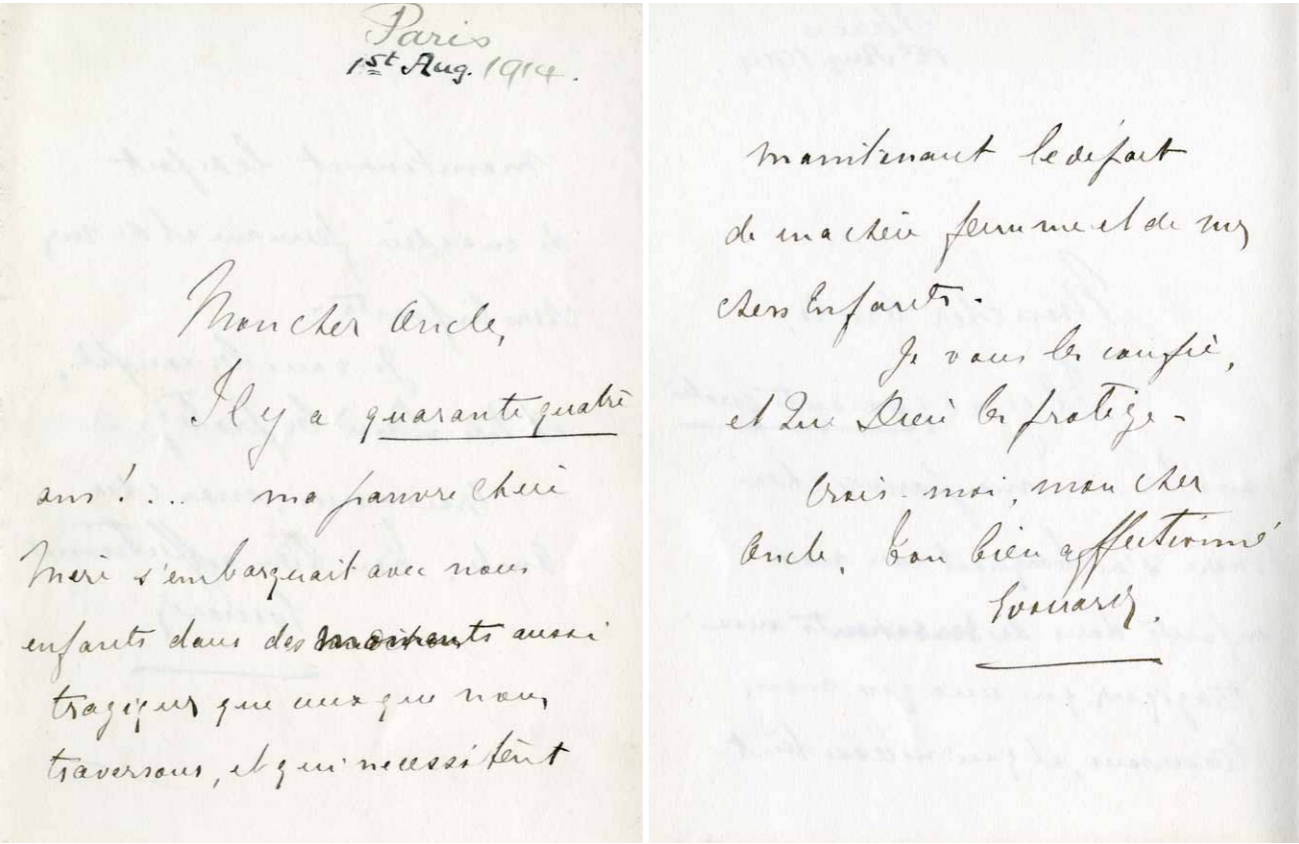 Paris
1st Aug. 1914.
Mon cher Oncle,
Il y a quarante quatre
ans! ... ma pauvre chère
Mère s'embarquait avec nous
enfants dans des moments aussi
tragiques que ceux que nous
traversons, et qui necessitent
maintenant le départ
de ma chère femme et de mes
chers Enfants.
Je vous les confie,
et que Dieu les protège -
Crois-moi, mon cher
Oncle, Ton bien affectionné
Edouard.